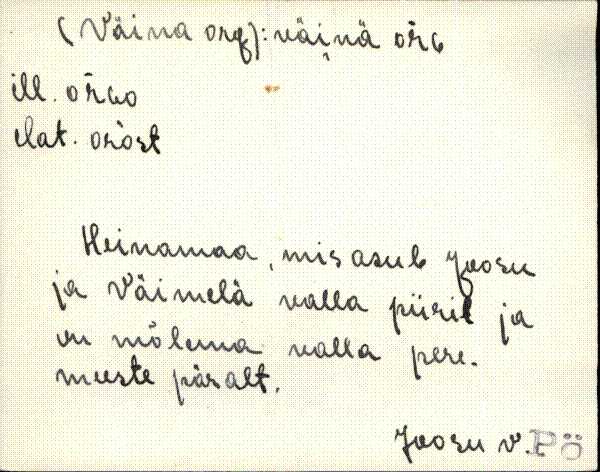 (Väina org): väi̮nä oŕG
ill. oŕGo
elat. orost
Heinamaa, mis asub Joosu
ja Väimela valla piiril ja
on mõlema valla pere-
meeste päralt.
Joosu v. Põ